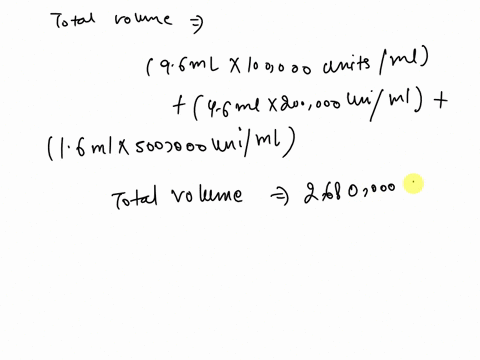 Total volume ⇒
(9.6mL × 100,000 units/ml)
+ (4.6ml × 200,000 uni/ml) +
(1.6ml × 500,000 uni/ml)
Total volume ⇒ 2680,000